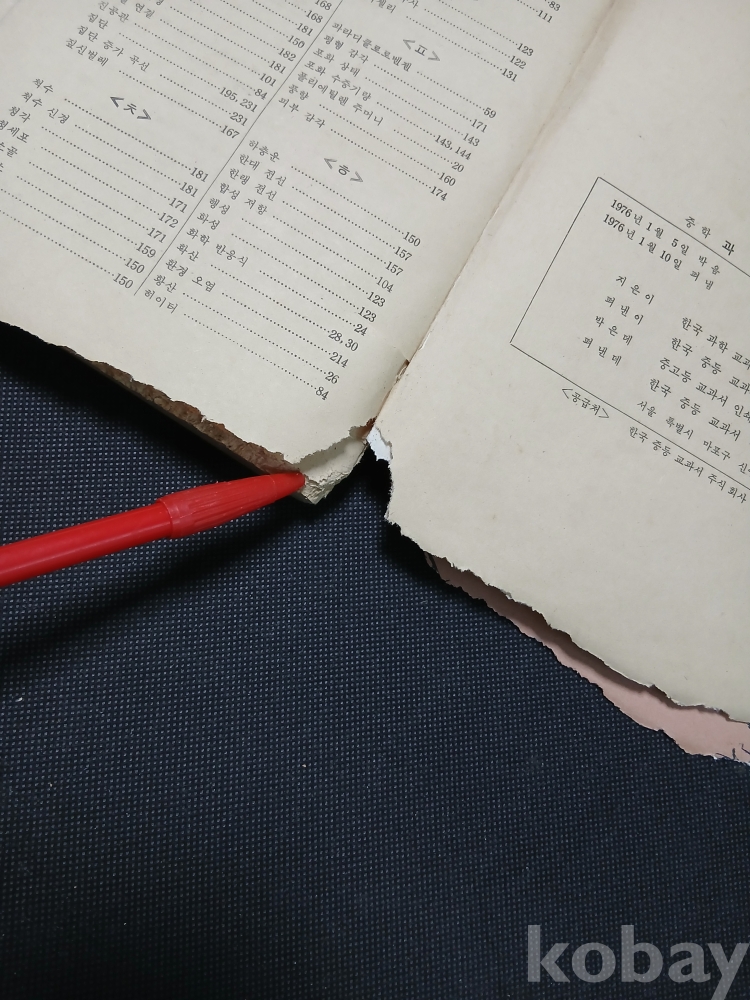 168
168
181
150
신경 연결
182
신종판
181
집단
101
집단 증가 곡선
84
짚신벌레
195, 231
231
167
<ㅊ>
척수
척수 신경
청각
181
181
171
172
171
159
150
150
83
111
123
<ㅍ>
122
파라디클로로벤젠
131
평형 감각
포화 상태
포화 수증기량
59
폴리에틸렌 주머니
171
풍향
143
피부 감각
143, 144
20
160
174
<ㅎ>
하층운
한대 전선
한랭 전선
150
합성 저항
157
행성
157
화성
104
화학 반응식
123
화산
123
환경 오염
24
황산
28, 30
히이터
214
26
84
중 학 과
1976년 1월 5일 박음
1976년 1월 10일 펴냄
지 은 이 한국 과학 교과
펴 낸 이 한국 중등 교과
박 은 데 중고등 교과서 인쇄
펴 낸 데 한국 중등 교과서
서울 특별시 마포구 신수
<공급처> 한국 중등 교과서 주식 회사
kobay